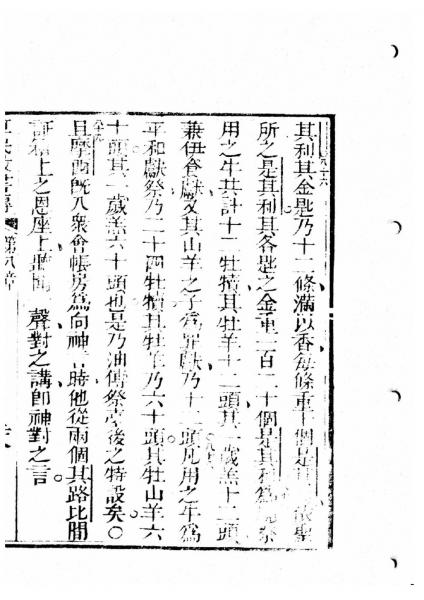 其利其金匙乃十二條滿以香每條重十個是其聖
所之是其利其各匙之金重一百二十個是其利爲祭
用之牛共計十二牡犢其牡羊十二頭其一歲羔十二頭
兼伊食獻又其山羊之子爲罪獻乃十二頭凡用之牛爲
平和獻祭乃二十四牡犢其牡羊乃六十頭其牡山羊六
十頭其一歲羔六十頭也是乃油傅祭臺後之特設矣○
且摩西旣入衆會帳房爲向神言時他從兩個其路比間
證箱上之恩座上聽聞一聲對之講卽神對之言
第八章